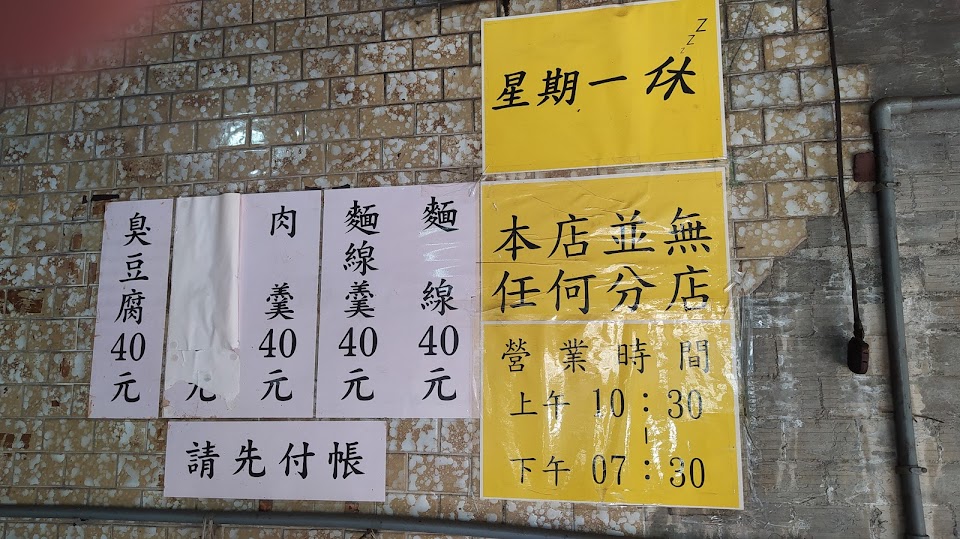 星期一休
zzZ
本店並無
任何分店
營業時間
上午 10:30
|
下午 07:30
麵線40元
麵線羹40元
肉羹40元
元
臭豆腐40元
請先付帳